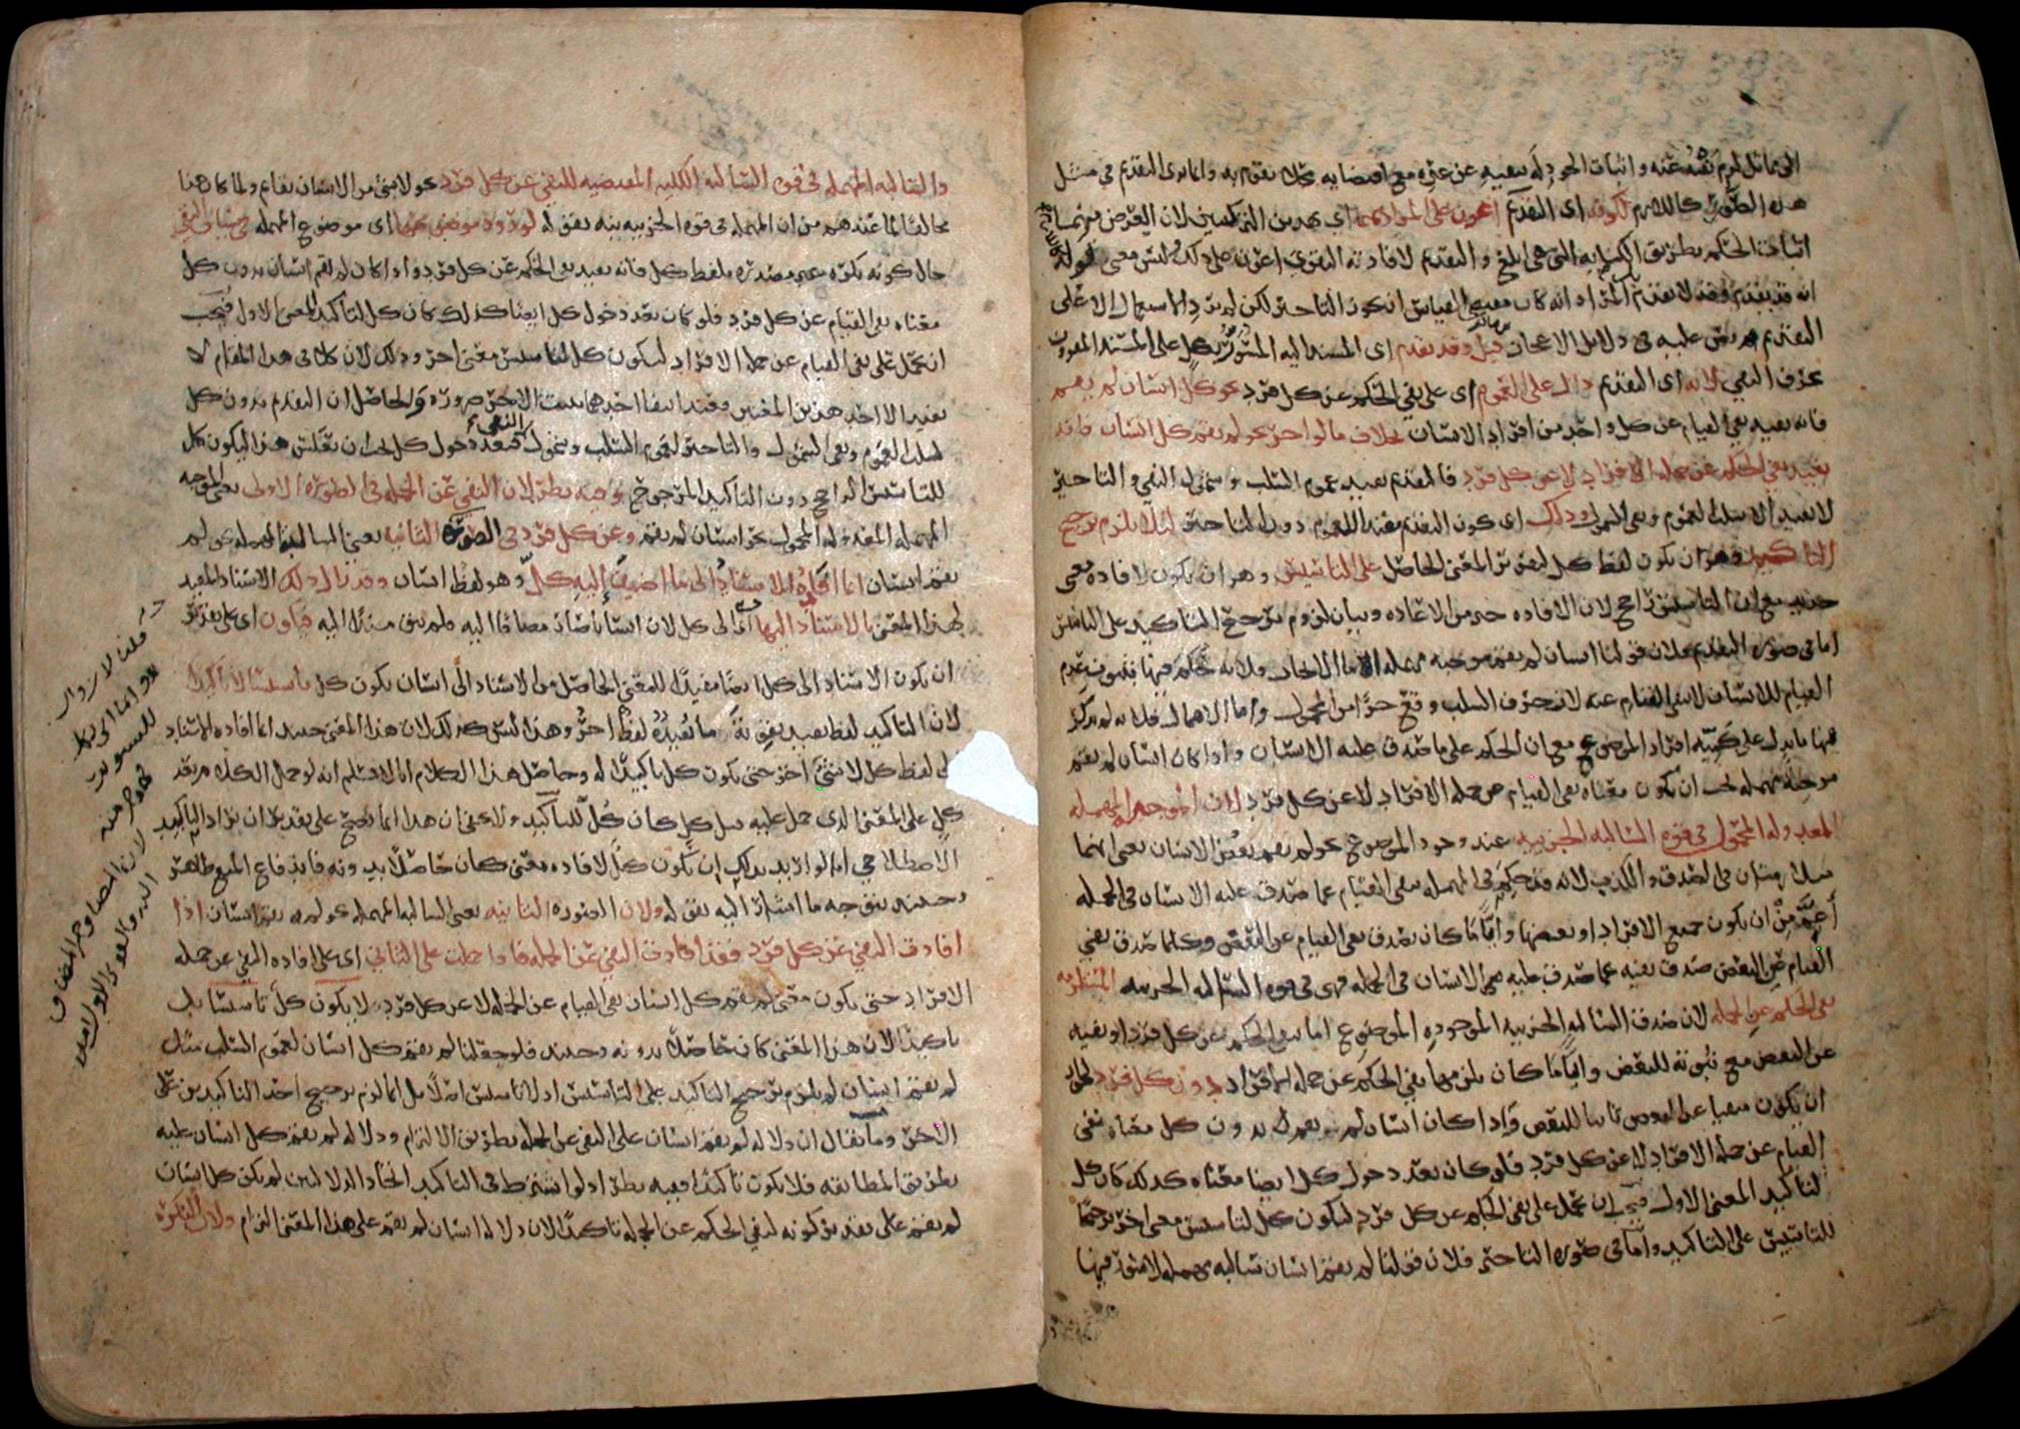 الى مماثل لزم نفيه عنه واثبات الجود له بنفيه عن غيره مع اقتضايه محلا يقوم به وانما يرى التقديم في مثل
هذه الصورة كاللازم لكونه اى التقديم اعون على المراد بهما اى بهذين التركيبين لان الغرض منهما
اثبات الحكم بطريق الكنايه التى هى ابلغ والتقديم لافادته التقوى اعون على ذلك وليس معنى قوله
انه قد يقدم وقد لا يقدم بل المراد انه كان مقتضى القياس ان يجوز التاخير لكن لم يرد الاستعمال الا على
التقديم نص عليه فى دلايل الاعجاز قيل وقد يقدم اى المسند اليه المسور بكل على المسند المقرون
بحرف النفى لانه اى التقديم دال على العموم اى على نفى الحكم عن كل فرد نحو كل انسان لم يقم
فانه يفيد نفى القيام عن كل واحد من افراد الانسان بخلاف ما لو اخر نحو لم يقم كل انسان فانه
يفيد نفى الحكم عن جمله الافراد لا عن كل فرد فالتقديم يفيد عموم السلب وشمول النفى والتاخير
لا يفيد الا سلب العموم ونفى الشمول وذلك اى كون التقديم مفيدا للعموم دون التاخير لئلا يلزم ترجيح
التاكيد وهو ان يكون لفظ كل لتقرير المعنى الحاصل على التاسيس وهو ان يكون لافاده معنى
جديد مع ان التاسيس راجح لان الافاده خير من الاعاده وبيان لزوم ترجيح التاكيد على التاسيس
اما فى صوره التقديم فلان قولنا انسان لم يقم موجبه مهمله اما الايجاب فلانه حكم فيها بثبوت عدم
القيام للانسان لا بنفى القيام عنه لان حرف السلب وقع جزءا من المحمول واما الاهمال فلانه لم يذكر
فيها ما يدل على كميه افراد الموضوع مع ان الحكم على ما صدق عليه الانسان واذا كان انسان لم يقم
موجبه مهمله يجب ان يكون معناه نفى القيام عن جمله الافراد لا عن كل فرد لان الموجبه المهمله
المعدوله المحمول فى قوه السالبه الجزييه عند وجود الموضوع نحو لم يقم بعض الانسان بمعنى انهما
متلازمتان فى الصدق والكذب لانه قد حكم فى المهمله بنفى القيام عما صدق عليه الانسان فى الجمله
اعم من ان يكون جميع الافراد او بعضها وايا ما كان يصدق نفى القيام عن البعض وكلما صدق نفى
القيام عن البعض صدق نفيه عما صدق عليه الانسان فى الجمله فهى فى قوه السالبه الجزييه المستلزمه
نفى الحكم عن الجمله لان صدق السالبه الجزييه الموجوده الموضوع اما بنفى الحكم عن كل فرد او نفيه
عن البعض مع ثبوته للبعض وايا ما كان يلزمها نفى الحكم عن جمله الافراد دون كل فرد لجواز
ان يكون منفيا عن البعض ثابتا للبعض واذا كان انسان لم يقم بدون كل معناه نفى
القيام عن جمله الافراد لا عن كل فرد فلو كان بعد دخول كل ايضا معناه كذلك كان كل
لتاكيد المعنى الاول فيجب ان يحمل على نفى الحكم عن كل فرد ليكون كل لتاسيس معنى اخر ترجيحا
للتاسيس على التاكيد واما فى صوره التاخير فلان قولنا لم يقم انسان سالبه مهمله لا سور فيها
والسالبه المهمله فى قوه السالبه الكليه المقتضيه للنفى عن كل فرد نحو لا شئ من الانسان بقايم ولما كان هذا
مخالفا لما عندهم من ان المهمله فى قوه الجزييه بينه بقوله لورود موضوعها اى موضوع المهمله فى سياق النفى
حال كونه نكره غير مصدره بلفظ كل فانه يفيد نفى الحكم عن كل فرد واذا كان لم يقم انسان بدون كل
معناه نفى القيام عن كل فرد فلو كان بعد دخول كل ايضا كذلك كان كل لتاكيد المعنى الاول فيجب
ان يحمل على نفى القيام عن جمله الافراد ليكون كل لتاسيس معنى اخر وذلك لان كل فى هذا المقام لا
يفيد الا احد هذين المعنيين فعند انتفا احدهما يثبت الاخر ضروره والحاصل ان التقديم بدون كل
لسلب العموم ونفى الشمول والتاخير لعموم السلب وشمول النفى فبعد دخول كل يجب ان يعكس هذا ليكون كل
للتاسيس الراجح دون التاكيد المرجوح وفيه نظر لان النفى عن الجمله فى الصوره الاولى يعنى الموجبه
المهمله المعدوله المحمول نحو انسان لم يقم وعن كل فرد فى الصوره الثانيه يعنى السالبه المهمله نحو لم
يقم انسان انما افاده الاسناد الى ما اضيف اليه كل وهو لفظ انسان وقد زال ذلك الاسناد المفيد
لهذا المعنى بالاسناد اليها اى الى كل لان انسانا صار مضافا اليه فلم يبق مسندا اليه فيكون اى على تقدير
ان يكون الاسناد الى كل ايضا مفيدا للمعنى الحاصل من الاسناد الى انسان يكون كل تاسيسا لا تاكيدا
لان التاكيد لفظ يفيد تقويه ما يفيده لفظ اخر وهذا ليس كذلك لان هذا المعنى حينئذ انما افاده الاسناد
الى لفظ كل لا شئ اخر حتى يكون كل تاكيدا له وحاصل هذا الكلام انا لا نسلم انه لو حمل الكلام بعد
كل على المعنى الذى حمل عليه قبل كل كان كل للتاكيد ولا يخفى ان هذا انما يصح على تقدير ان يراد التاكيد
الاصطلاحى اما لو اريد بذلك ان يكون كل لافاده معنى كان حاصلا بدونه فاندفاع المنع ظاهر
وحينئذ يتوجه ما اشار اليه بقوله ولان الصوره الثانيه يعنى السالبه المهمله نحو لم يقم انسان اذا
افادت النفى عن كل فرد فقد افادت النفى عن الجمله فاذا حملت على الثانى اى على افاده النفى عن جمله
الافراد حتى يكون معنى لم يقم كل انسان نفى القيام عن الجمله لا عن كل فرد لا يكون كل تاسيسا بل
تاكيدا لان هذا المعنى كان حاصلا بدونه وحينئذ فلو جعلنا لم يقم كل انسان لعموم السلب مثل
لم يقم انسان لم يلزم ترجيح التاكيد على التاسيس اذ لا تاسيس اصلا بل انما لزم ترجيح احد التاكيدين على
الاخر وما يقال ان دلاله لم يقم انسان على النفى عن الجمله بطريق الالتزام ودلاله لم يقم كل انسان عليه
بطريق المطابقه فلا يكون تاكيدا ففيه نظر اذ لو اشترط فى التاكيد اتحاد الدلالتين لم يكن كل انسان
لم يقم على تقدير كونه لنفى الحكم عن الجمله تاكيدا لان دلاله انسان لم يقم على هذا المعنى التزام ولان النكره